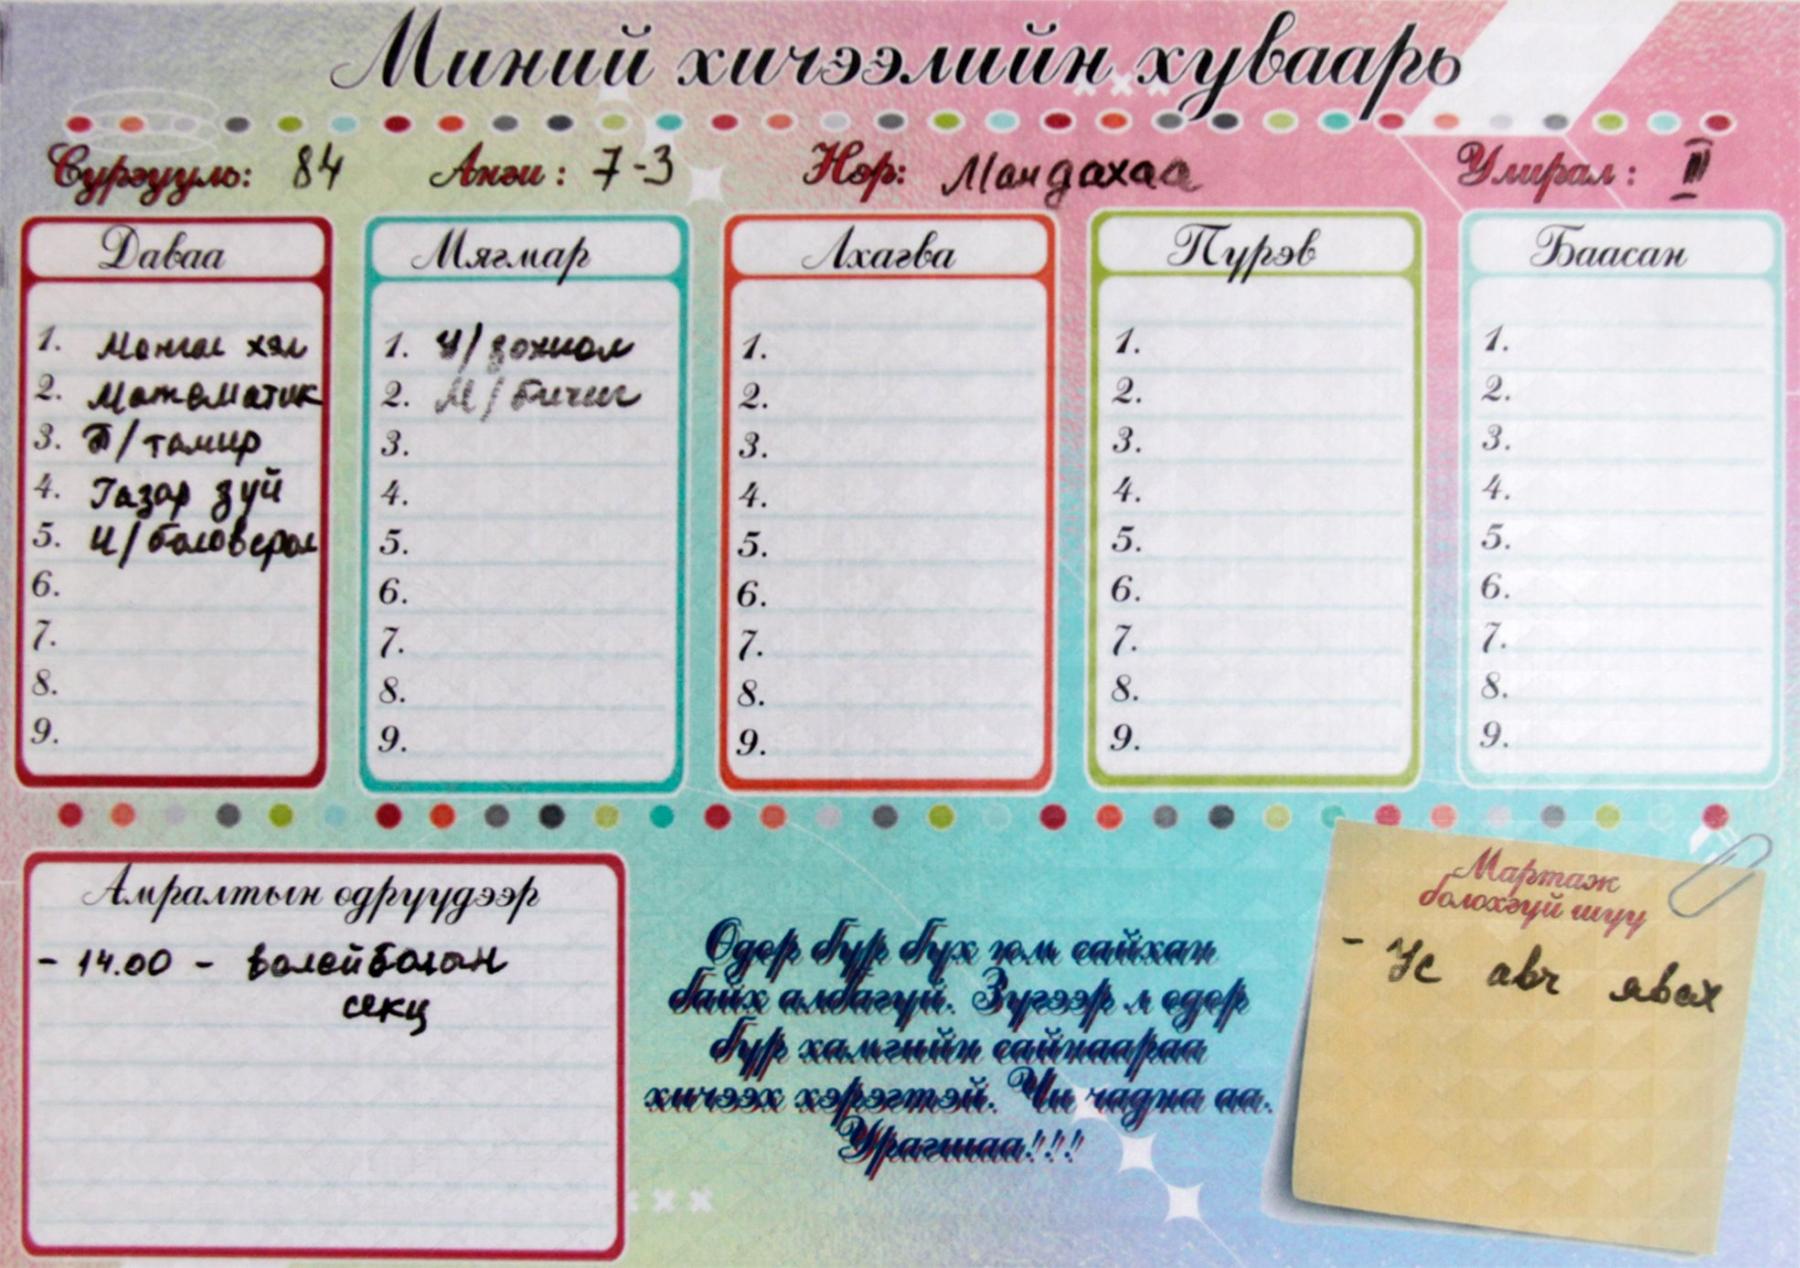 Миний хичээлийн хуваарь
Сургууль: 84 Анги: 7-3 Нэр: Мандахаа Улирал: III
Даваа
1. Монгол хэл
2. Математик
3. Б/тамир
4. Газар зүй
5. И/боловсрол
6.
7.
8.
9.
Мягмар
1. У/зохиол
2. М/бичиг
3.
4.
5.
6.
7.
8.
9.
Лхагва
1.
2.
3.
4.
5.
6.
7.
8.
9.
Пүрэв
1.
2.
3.
4.
5.
6.
7.
8.
9.
Баасан
1.
2.
3.
4.
5.
6.
7.
8.
9.
Амралтын өдрүүдээр
- 14.00 - Волейболын
секц
Өдөр бүр бүх юм сайхан
байх албагүй. Зүгээр л өдөр
бүр хамгийн сайнаараа
хичээх хэрэгтэй. Чи чадна аа.
Урагшаа!!!
Мартаж
болохгүй шүү
- Ус авч явах